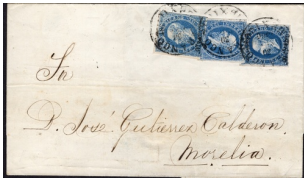 Sor
D. José Gutierrez Calderon.
Morelia.